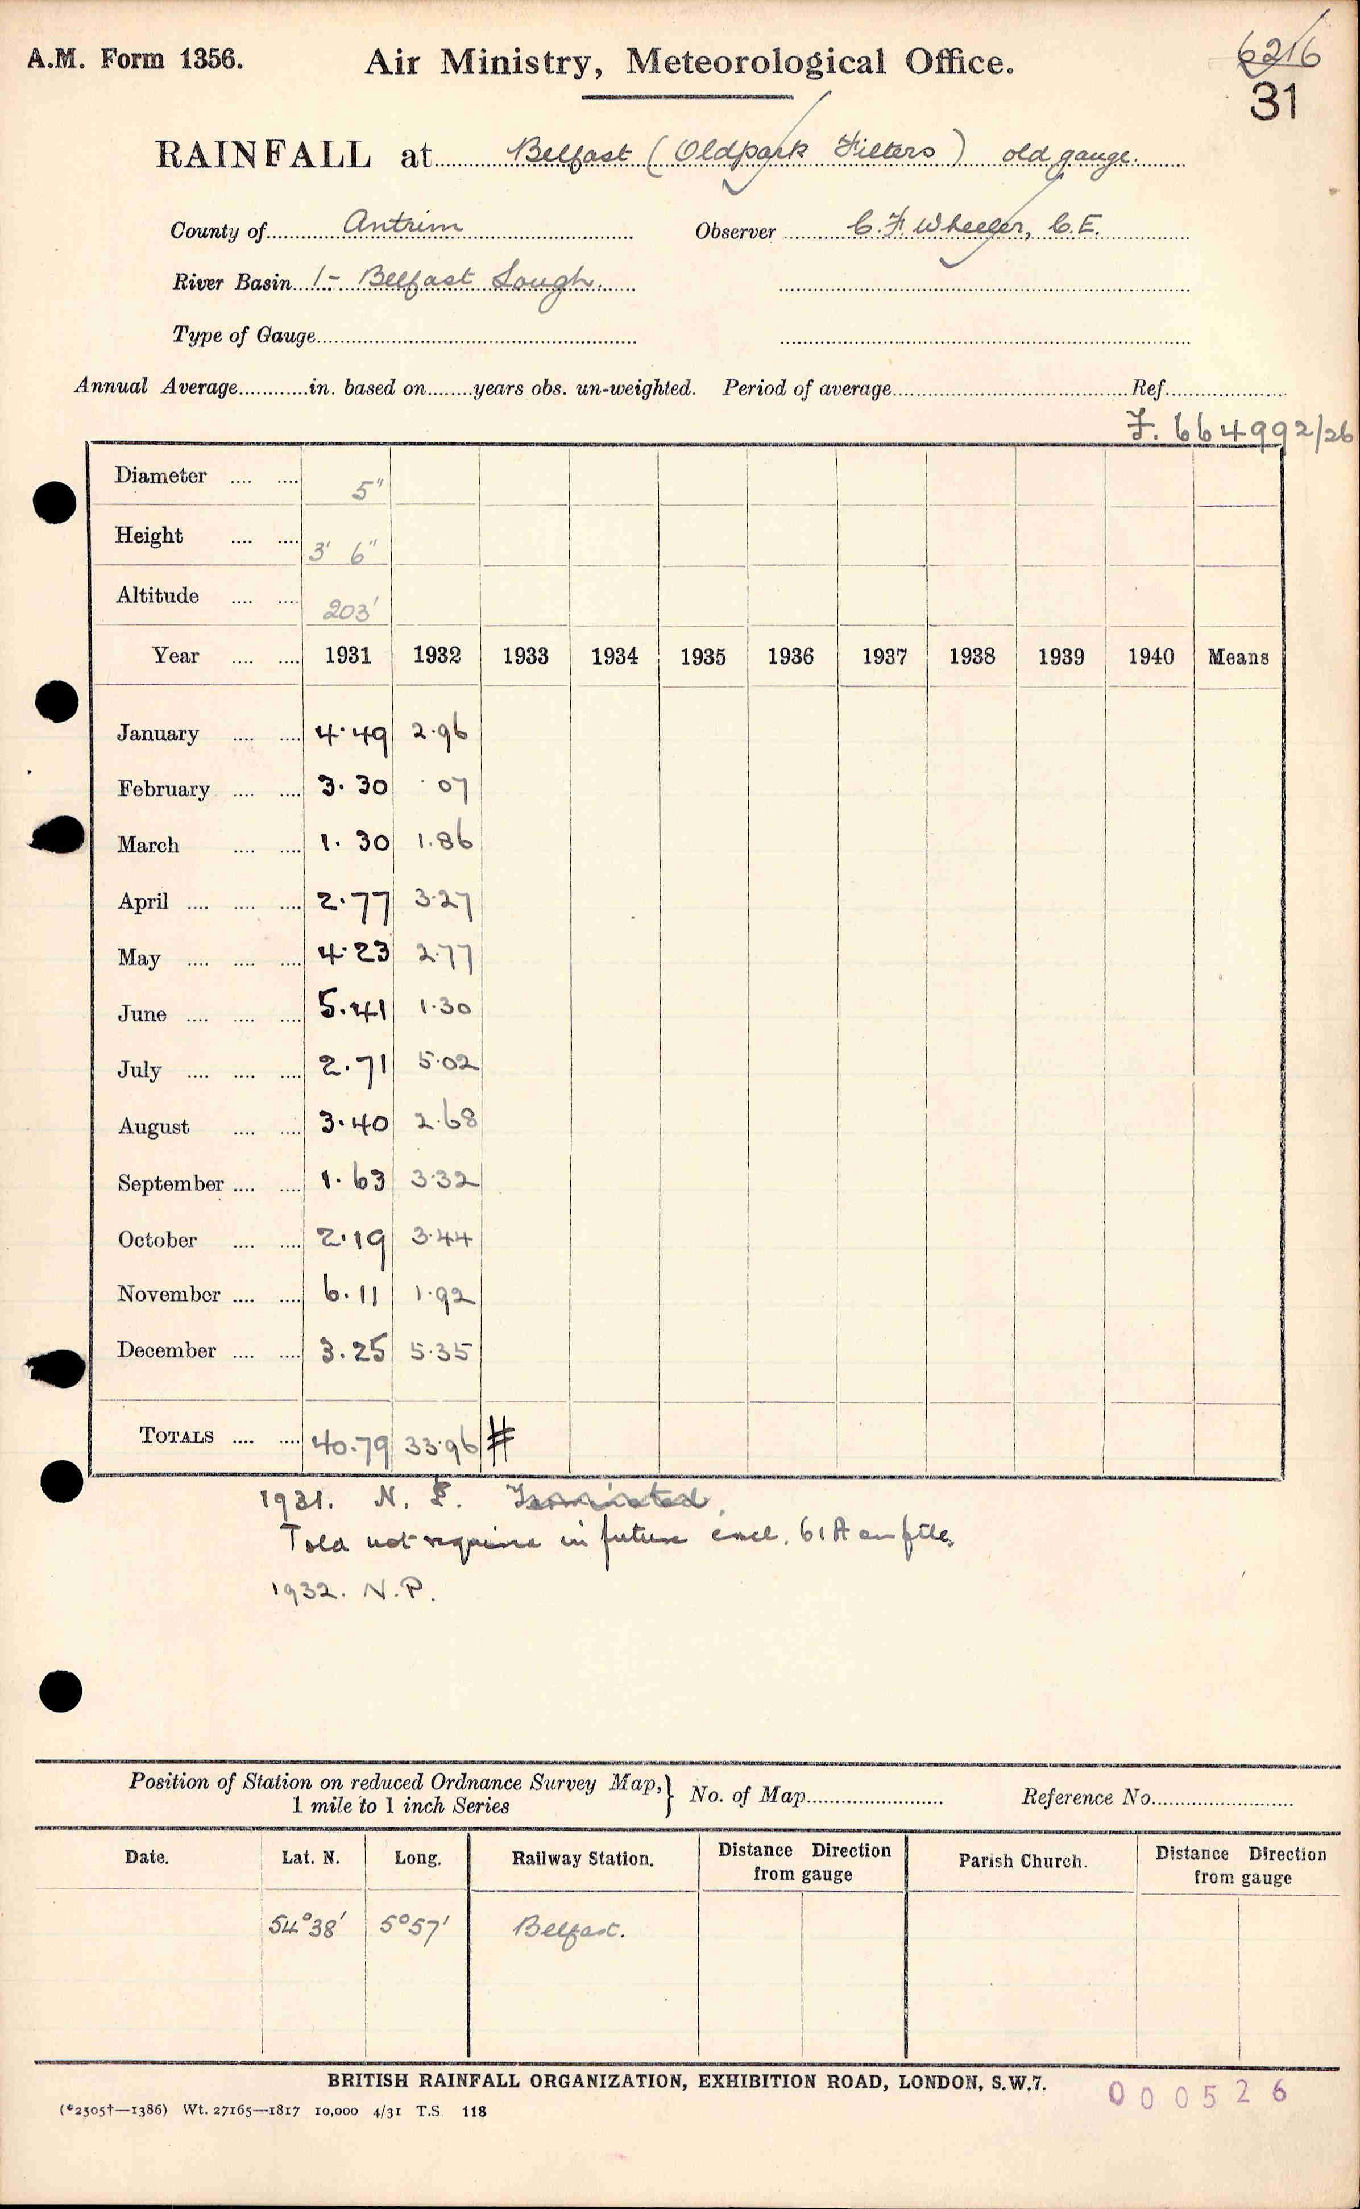 A.M. Form 1356.
Air Ministry, Meteorological Office.
6216
31
RAINFALL at Belfast (Oldpark Filters) old gauge.
County of Antrim Observer C. F. Wheeler, C.E.
River Basin 1- Belfast Lough.
Type of Gauge
Annual Average in. based on years obs. un-weighted. Period of average Ref.
F. 664992/26
Diameter 5"
Height 3' 6"
Altitude 203'
Year 1931 1932 1933 1934 1935 1936 1937 1938 1939 1940 Means
January 4.49 2.96
February 3.30 .07
March 1.30 1.86
April 2.77 3.27
May 4.23 2.77
June 5.41 1.30
July 2.71 5.02
August 3.40 2.68
September 1.63 3.32
October 2.19 3.44
November 6.11 1.92
December 3.25 5.35
TOTALS 40.79 33.96 #
1931. N.
Told not require in future encl. 61A on file.
1932. N.P.
Position of Station on reduced Ordnance Survey Map, } No. of Map Reference No.
1 mile to 1 inch Series
Date. Lat. N. Long. Railway Station. Distance Direction from gauge Parish Church. Distance Direction from gauge
54°38' 5°57' Belfast.
BRITISH RAINFALL ORGANIZATION, EXHIBITION ROAD, LONDON, S.W.7.
000526
(*2505†—1386) Wt. 27165—1817 10,000 4/31 T.S. 118